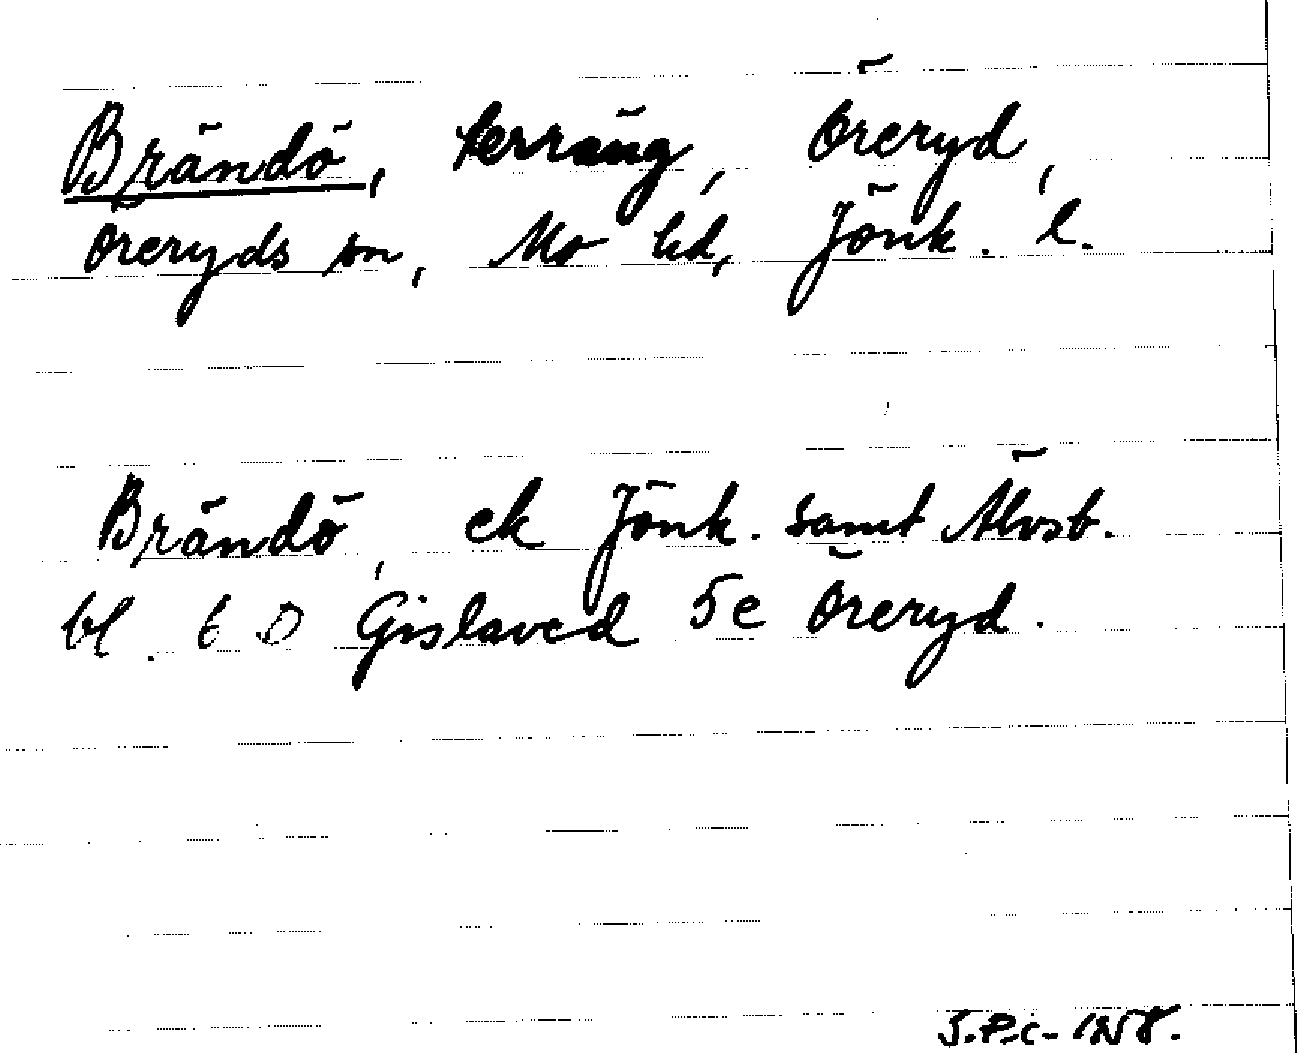 Brändö, terräng, Öreryd,
Öreryds sn, Mo hd, Jönk. l.
Brändö, ek Jönk. samt Älvsb.
bl. 6 D Gislaved 5e Öreryd.